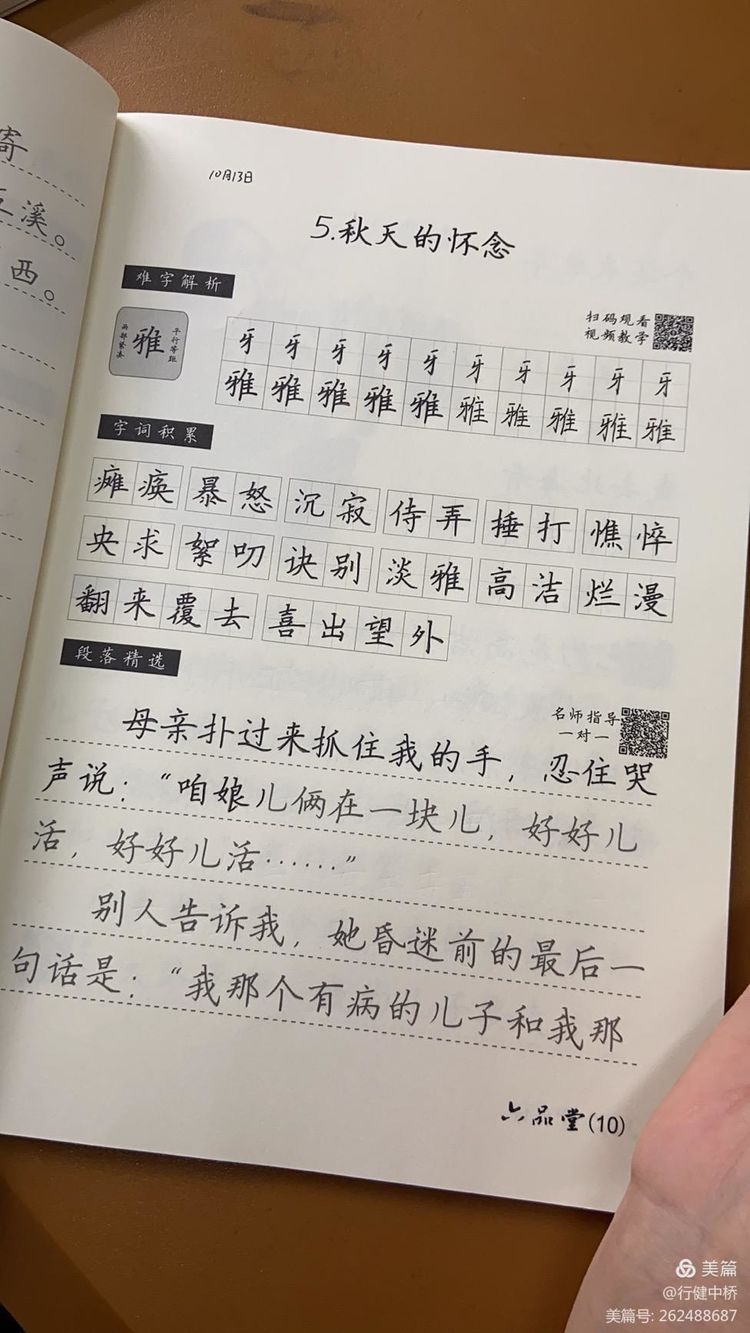 寄
溪。
西。
10月13日
5.秋天的怀念
难字解析
扫码观看
视频教学
两部紧凑
雅
平行等距
牙牙牙牙牙牙牙牙牙牙
雅雅雅雅雅雅雅雅雅雅
字词积累
瘫痪 暴怒 沉寂 侍弄 捶打 憔悴
央求 絮叨 诀别 淡雅 高洁 烂漫
翻来覆去 喜出望外
段落精选
名师指导
一对一
母亲扑过来抓住我的手，忍住哭
声说：“咱娘儿俩在一块儿，好好儿
活，好好儿活……”
别人告诉我，她昏迷前的最后一
句话是：“我那个有病的儿子和我那
六品堂(10)
美篇
@行健中桥
美篇号: 262488687